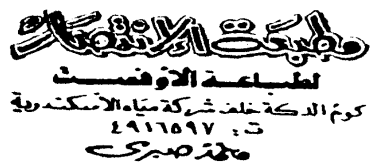 مطبعة الانتصار
لطباعة الاوفست
كوم الدكة خلف شركة مياه الأسكندرية
ت : ٤٩١٦٥٩٧
محمد صبرى